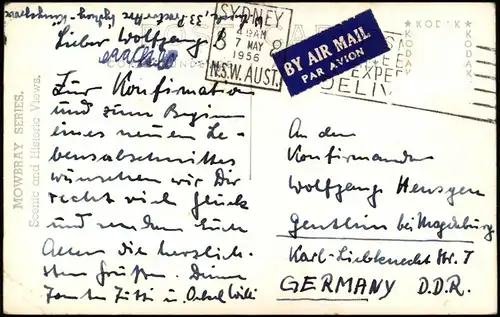 SYDNEY
7 MAY
1956
N.S.W. AUST.
BY AIR MAIL
PAR AVION
KODAK
MOWBRAY SERIES.
Scenic and Historic Views.
Lieber Wolfgang
Zur Konfirmation
und zum Beginn
eines neuen Le-
bensabschnittes
wünschen wir Dir
recht viel Glück
und senden Euch
Allen die herzlich-
sten Grüße. Deine
Tante u. Onkel Willi
An den
Konfirmanden
Wolfgang
Genthin bei Magdeburg
Karl-Liebknecht Str. 7
GERMANY D.D.R.